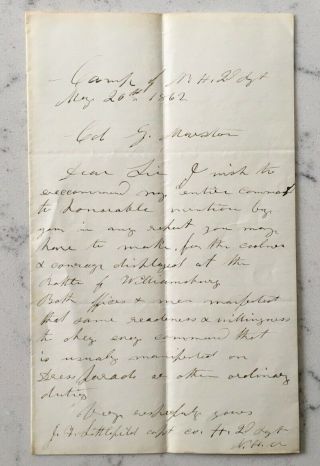 Camp of N.H. 2d Rgt
May 20th 1862
Col G. Marston
Dear Sir I wish to
reccommend my entire command
to honorable mention by
you in any report you may
have to make, for the coolness
& courage displayed at the
Battle of Williamsburg
Both officers & men manifested
that same readeness & willingness
to obey every command that
is usualy manifested on
Dress parade or other ordinary
duties
Very respectfuly yours
J. F. Littlefield capt co. H. 2d Rgt
N.H.